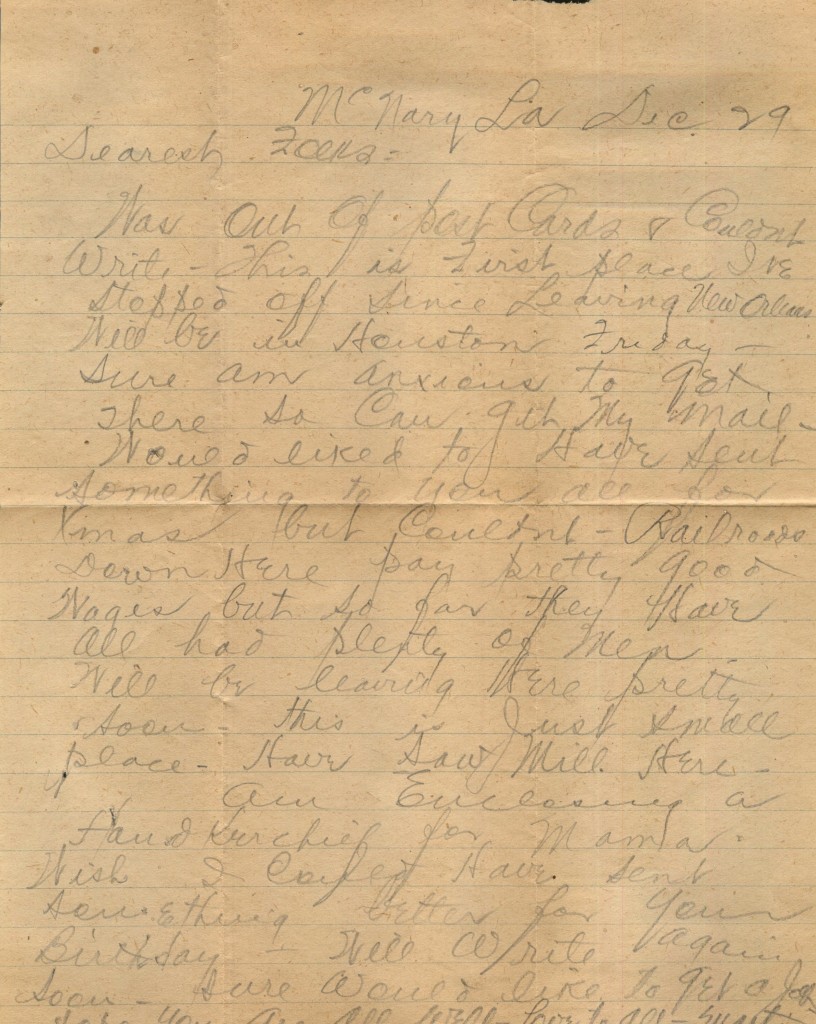 McNary La Dec. 29
Dearest Folks =
Was out of post Cards & Couldnt
Write - This is First place I've
stopped off since Leaving New Orleans
Will be in Houston Friday -
Sure am anxious to get
There so Can gth My mail -
Would liked to Have sent
something to you all for
Xmas but Couldnt - Railroads
Down Here pay pretty good
Wages but so far they Have
all had plenty of Men
Will be leaving Here pretty
soon - this is Just small
place - Have Saw Mill Here -
Am Enclosing a
Handkerchief for Mama.
Wish I Could Have sent
something better for your
Birthday - Will Write again
Soon - Sure Would like to get a Job
Hope You are all Well - Love to all -